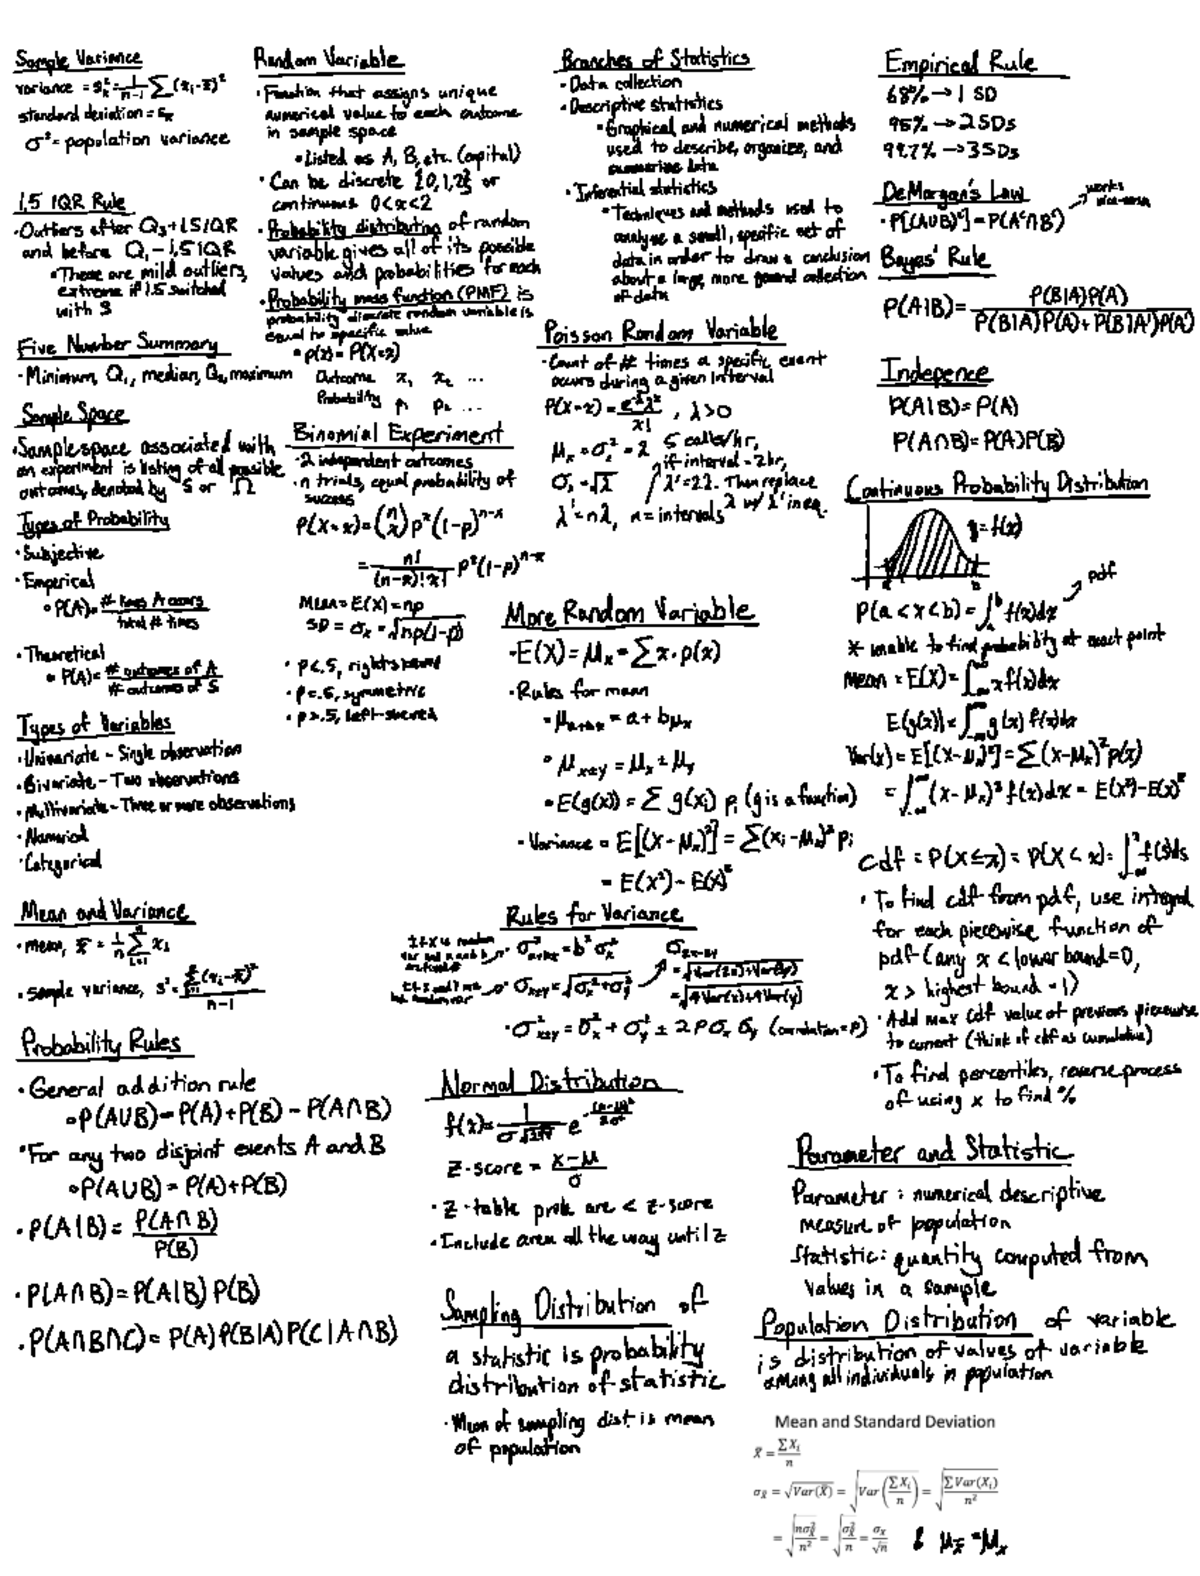 Sample Variance
variance = s²ₓ = 1/(n-1) ∑(xᵢ-x̄)²
standard deviation = sₓ
σ² = population variance
1.5 IQR Rule
·Outliers after Q₃+1.5IQR
and before Q₁-1.5IQR
•These are mild outliers,
extreme if 1.5 switched
with 3
Five Number Summary
·Minimum, Q₁, median, Q₃, maximum
Sample Space
·Sample space associated with
an experiment is listing of all possible
outcomes, denoted by S or Ω
Types of Probability
·Subjective
·Emperical
•P(A)= # times A occurs / total # times
·Theoretical
•P(A)= # outcomes of A / # outcomes of S
Types of Variables
·Univariate - Single observation
·Bivariate - Two observations
·Multivariate - Three or more observations
·Numerical
·Categorical
Mean and Variance
·mean, x̄ = 1/n ∑ᵢ₌₁ⁿ xᵢ
·sample variance, s² = ∑ᵢ₌₁ⁿ(xᵢ-x̄)² / n-1
Probability Rules
·General addition rule
•P(A∪B)=P(A)+P(B)-P(A∩B)
·For any two disjoint events A and B
•P(A∪B)=P(A)+P(B)
·P(A|B)= P(A∩B) / P(B)
·P(A∩B)=P(A|B)P(B)
·P(A∩B∩C)=P(A)P(B|A)P(C|A∩B)
Random Variable
·Function that assigns unique
numerical value to each outcome
in sample space
•Listed as A, B, etc. (capital)
·Can be discrete {0,1,2} or
continuous 0<x<2
·Probability distribution of random
variable gives all of its possible
values and probabilities for each
·Probability mass function (PMF) is
probability discrete random variable is
equal to specific value
•p(x)=P(X=x)
Outcome x₁ x₂ ...
Probability p₁ p₂ ...
Binomial Experiment
·2 independent outcomes
·n trials, equal probability of
success
P(X=x)=(n x)pˣ(1-p)ⁿ⁻ˣ
= n! / (n-x)!x! pˣ(1-p)ⁿ⁻ˣ
Mean=E(X)=np
SD = σₓ=√np(1-p)
·p<.5, right skewed
·p=.5, symmetric
·p>.5, left-skewed
Branches of Statistics
·Data collection
·Descriptive statistics
•Graphical and numerical methods
used to describe, organize, and
summarize data
·Inferential statistics
•Techniques and methods used to
analyze a small, specific set of
data in order to draw a conclusion
about a large, more general collection
of data
Poisson Random Variable
·Count of # times a specific event
occurs during a given interval
P(X=x)= e^-λ λˣ / x! , λ>0
μₓ=σ²ₓ=λ
σₓ=√λ
λ'=nλ, n=intervals
5 calls/hr,
if interval=2hr,
λ'=2λ. Then replace
λ w/ λ' in eq.
More Random Variable
·E(X)=μₓ=∑x·p(x)
·Rules for mean
•μₐ₊bₓ=a+bμₓ
•μₓ±y=μₓ±μy
•E(g(x))=∑g(xᵢ)pᵢ (g is a function)
·Variance = E[(X-μₓ)²]=∑(xᵢ-μₓ)²pᵢ
= E(X²)-E(X)²
Rules for Variance
·σ²ₐ₊bₓ=b²σ²ₓ
·σₓ±y=√σ²ₓ+σ²y
= √Var(2x)+Var(2y)
= √4Var(x)+4Var(y)
·σ²ₓ±y=σ²ₓ+σ²y±2ρσₓσy (correlation=ρ)
Normal Distribution
f(x)= 1/(σ√2π) e^-(x-μ)²/2σ²
Z-score = x-μ / σ
·Z-table prob are < z-score
·Include area all the way until z
Sampling Distribution of
a statistic is probability
distribution of statistic
·Mean of sampling dist is mean
of population
Empirical Rule
68%→1 SD
95%→2SDs
99.7%→3SDs
DeMorgan's Law
·P[(A∪B)ᶜ]=P(Aᶜ∩Bᶜ) works vice-versa
Bayes' Rule
P(A|B)= P(B|A)P(A) / P(B|A)P(A)+P(B|A')P(A')
Indepence
P(A|B)=P(A)
P(A∩B)=P(A)P(B)
Continuous Probability Distribution
y=f(x)
a b
P(a<x<b)=∫ₐᵇ f(x)dx pdf
* unable to find probability at exact point
Mean = E(X)=∫₋∞^∞ xf(x)dx
E(g(x))=∫₋∞^∞ g(x)f(x)dx
Var(x)=E[(X-μₓ)²]=∑(x-μₓ)²p(x)
=∫₋∞^∞(x-μₓ)²f(x)dx=E(X²)-E(X)²
cdf = P(X≤x)=P(X<x)=∫₋∞ˣ f(s)ds
·To find cdf from pdf, use integral
for each piecewise function of
pdf (any x<lower bound=0,
x>highest bound=1)
·Add max cdf value of previous piecewise
to current (think of cdf as cumulative)
·To find percentiles, reverse process
of using x to find %
Parameter and Statistic
Parameter: numerical descriptive
measure of population
Statistic: quantity computed from
values in a sample
Population Distribution of variable
is distribution of values of variable
among all individuals in population
Mean and Standard Deviation
X̄ = ∑Xᵢ / n
σ_X̄ = √Var(X̄) = √Var(∑Xᵢ / n) = √∑Var(Xᵢ) / n²
= √nσ²_X / n² = √σ²_X / n = σ_X / √n & μ_x̄=μₓ